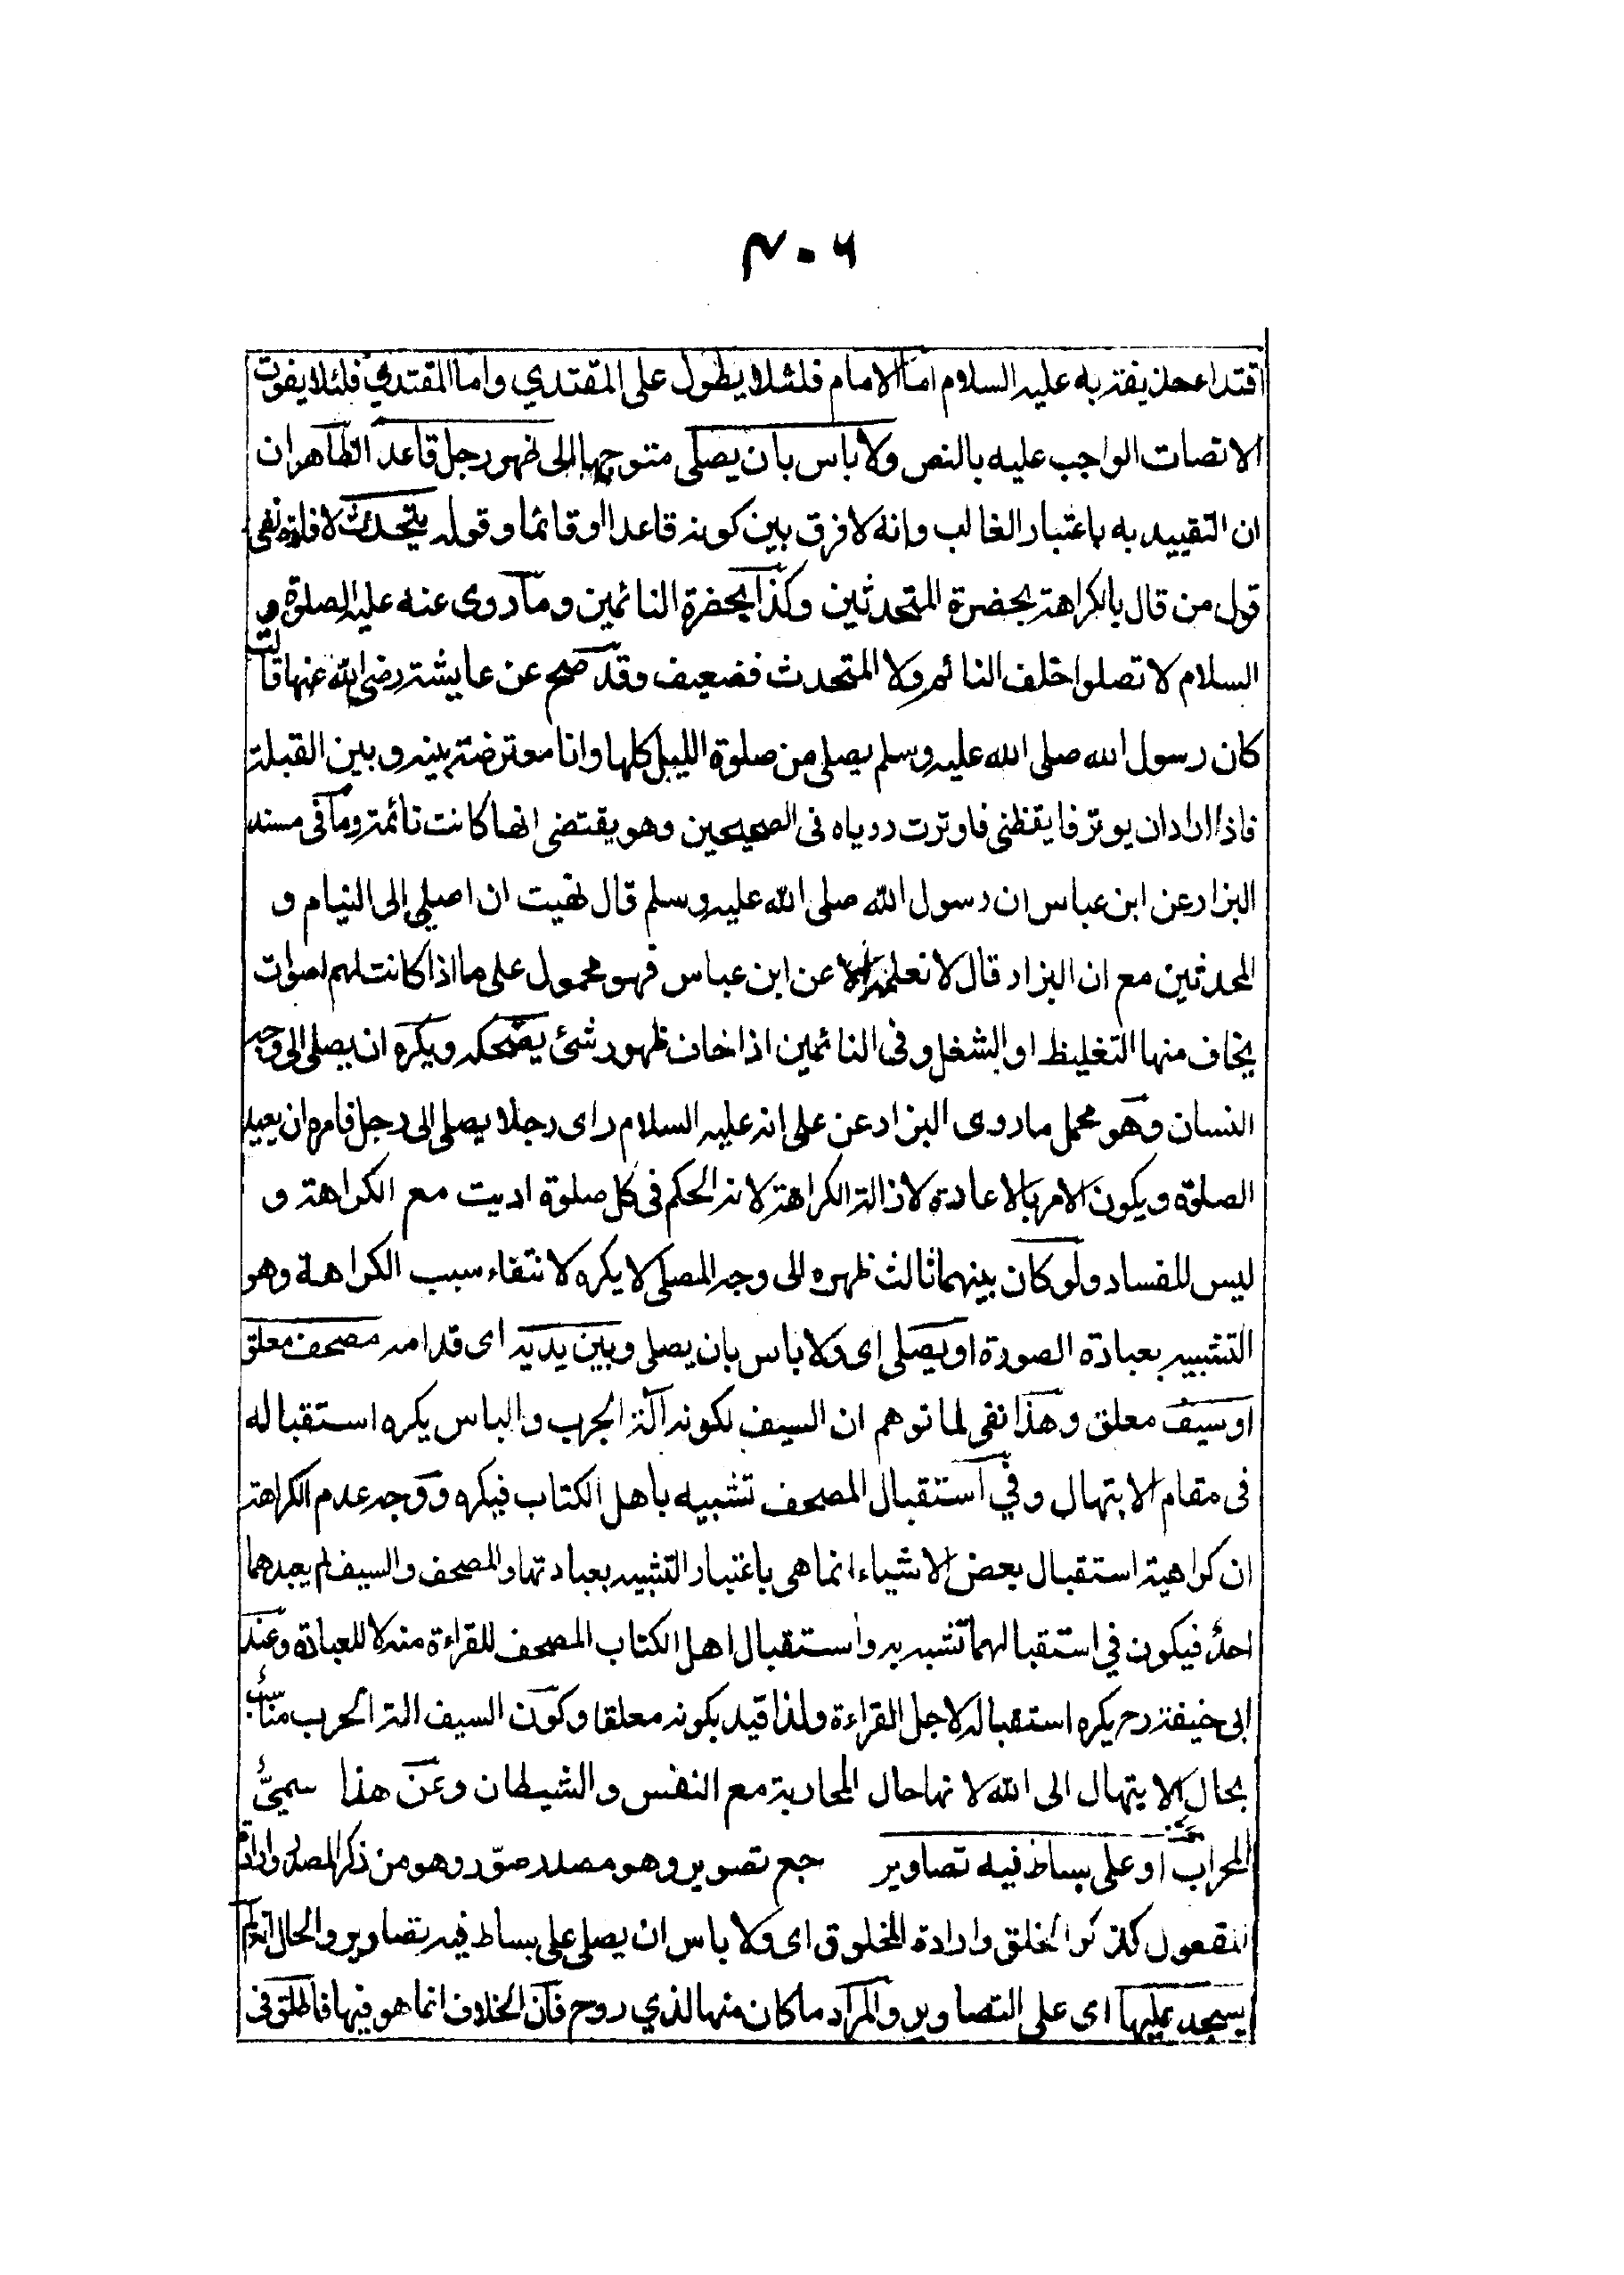 ۳۰۶
اقتداء حذيفة به عليه السلام اما الامام فلئلا يطول على المقتدي واما المقتدي فلئلا يفوت
الانصات الواجب عليه بالنص ولا باس بان يصلى متوجها الى ظهور رجل قاعد الظاهر ان
ان التقييد به باعتبار الغالب وانه لا فرق بين كونه قاعدا او قائما وقوله يتحدث لافادة نفى
قول من قال بالكراهة بحضرة المتحدثين وكذا بحضرة النائمين وما روى عنه عليه الصلوة و
السلام لا تصلوا خلف النائم ولا المتحدث فضعيف وقد صح عن عايشة رضى الله عنها قالت
كان رسول الله صلى الله عليه وسلم يصلى من صلوة الليل كلها وانا معترضة بينه وبين القبلة
فاذا اراد ان يوتر فايقظنى فاوترت روياه فى الصحيحين وهو يقتضى انها كانت نائمة وما فى مسند
البزار عن ابن عباس ان رسول الله صلى الله عليه وسلم قال نهيت ان اصلى الى النيام و
المحدثين مع ان البزار قال لا نعلمه الا عن ابن عباس فهو محمول على ما اذا كانت لهم اصوات
يخاف منها التغليظ او الشغل وفى النائمين اذا خاف ظهور شئ يضحكه ويكره ان يصلى الى وجه
انسان وهو محمل ما روى البزار عن على انه عليه السلام راى رجلا يصلى الى رجل فامره ان يعيد
الصلوة ويكون الامر بالاعادة لازالة الكراهة لانه الحكم فى كل صلوة اديت مع الكراهة و
ليس للفساد ولو كان بينهما ثالث ظهره الى وجه المصلى لا يكره لانتفاء سبب الكراهة وهو
التشبيه بعبادة الصورة او يصلى اى ولا باس بان يصلى وبين يديه اى قدامه مصحف معلق
او سيف معلق وهذا نفى لما توهم ان السيف لكونه آلة الحرب والباس يكره استقباله
فى مقام الابتهال وفي استقبال المصحف تشبيه باهل الكتاب فيكره ووجه عدم الكراهة
ان كراهية استقبال بعض الاشياء انما هى باعتبار التشبيه بعبادتها والمصحف والسيف لم يعبدهما
احد فيكون في استقبالهما تشبه به واستقبال اهل الكتاب المصحف للقراءة منه لا للعبادة وعند
ابى حنيفة رح يكره استقباله لاجل القراءة ولذا قيد بكونه معلقا وكون السيف الة الحرب مناسب
بحال الابتهال الى الله لانها حال المحاربة مع النفس والشيطان وعن هذا سمىّ
المحراب او على بساط فيه تصاوير جمع تصوير وهو مصدر صوّر وهو من ذكر المصدر وارادة
المفعول كذكر الخلق وارادة المخلوق اى ولا باس ان يصلى على بساط فيه تصاوير والحال انه لم
يسجد عليها اى على التصاوير والمراد ما كان منها لذي روح فان الخلاف انما هو فيها فاطلق فى